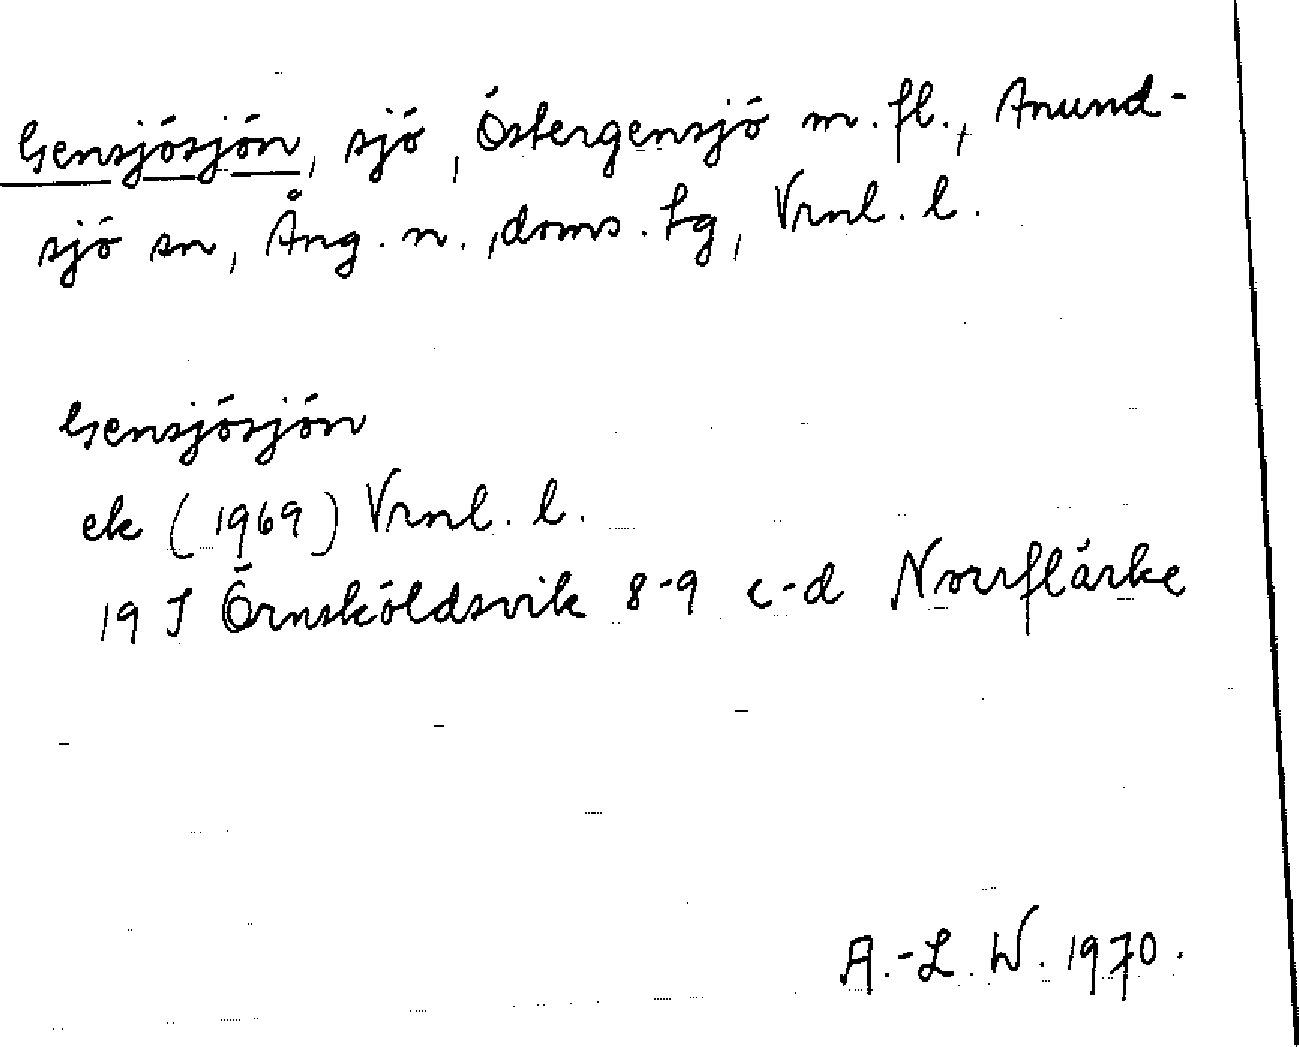 Gensjösjön, sjö, Östergensjö m.fl., Anund-
sjö sn, Ång. n., doms. tg, Vrnl. l.
Gensjösjön
ek (1969) Vrnl. l.
19 J Örnsköldsvik 8-9 c-d Norrflärke
A.-L. W. 1970.